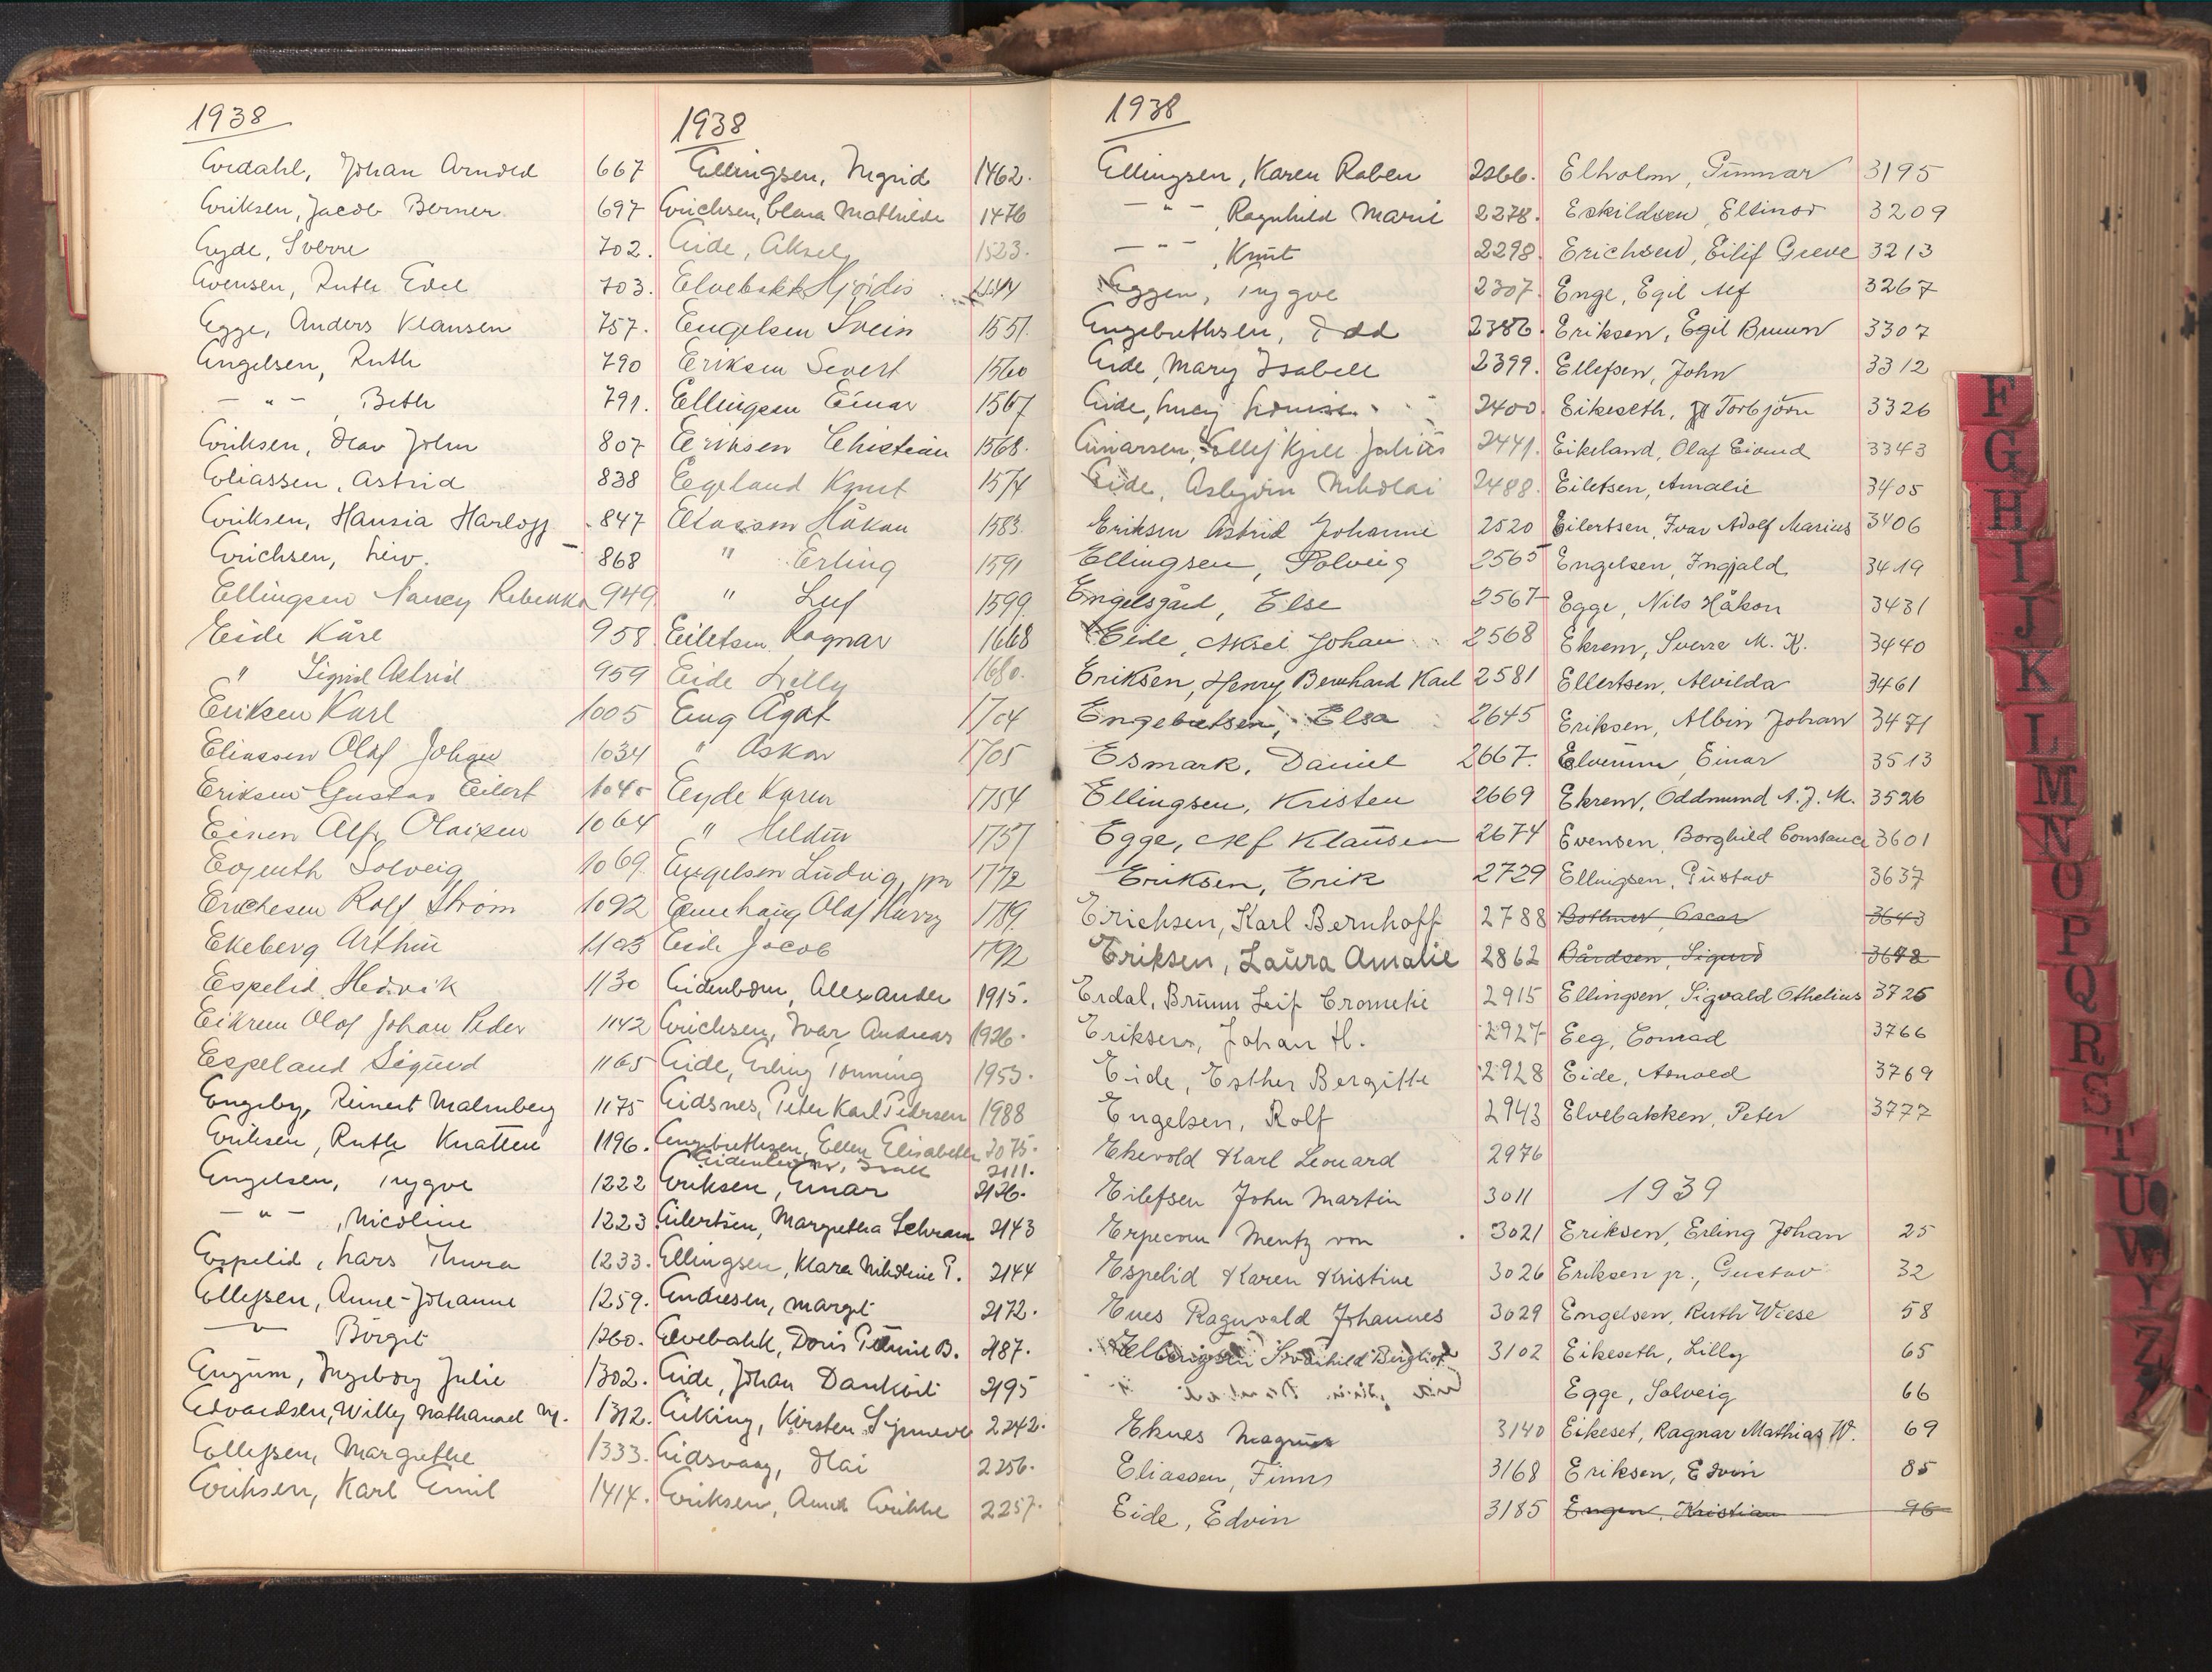 1938
Evdahl, Johan Arnold 667
Eriksen, Jacob Berner 697
Eyde, Sverre 702.
Evensen, Ruth Edel 703.
Egge, Anders Klausen 757.
Engelsen, Ruth 790
— " — , Beth 791.
Eriksen, Olav John 807
Eliassen, Astrid 838
Eriksen, Hansia Harlopp 847
Erichsen, Liv. 868
Ellingsen Nancy Rebekka 949
Eide Kåre 958
" Sigrid Astrid 959
Eriksen Karl 1005
Eliassen Olaf Johan 1034
Eriksen Gustav Eilert 1040
Einen Alfr. Olaisen 1064
Solveig 1069
Erichesen Rolf Strøm 1092
Ekeberg Arthur 1103
Espelid Hedvik 1130
Eikrem Olof Johan Peder 1142
Espeland Sigurd 1165
Engeby, Reinert Malmberg 1175
Eriksen, Ruth Knatten 1196.
Engelsen, Trygve 1222
— " — , Nicoline 1223
Espelid, Lars Thura 1233.
Ellefsen, Anne-Johanne 1259.
— " — Borgit 1260.
Engum, Ingeborg Julie 1302.
Edvardsen, Willy Nathanael M. 1312.
Ellefsen, Margrethe 1333.
Eriksen, Karl Emil 1414.
1938
Ellingsen, Ingrid 1462.
Erichsen, Clara Mathilde 1476
Eide, Aksel 1523.
Elvebakk Hjørdis 1544
Engelsen Svein 1551.
Eriksen Severt 1560
Ellingsen Einar 1567
Eriksen Christian 1568.
Egeland Knut 1574
Eliassen Håkon 1583.
" Erling 1591
" Leif 1599
Eilertsen Ragnar 1668
Eide Lilly 1680.
Eng Ågot 1704
" Oskar 1705
Eyde Karen 1754
" Heldur 1757
Engelsen Ludvig, jr 1772
Emehaug Olaf Harry 1789.
Eide Jacob 1792
Eidenbom, Alexander 1915.
Erichsen, Ivar Andreas 1926.
Eide, Erling Tønning 1953.
Eidsnes, Peter Karl Pedersen 1988
Engebrethsen, Ellen Elisabeth 2075.
2111.
Eriksen, Einar 2126.
Eilertsen, Margretha Schram 2143
Ellingsen, Klara Nikoline P. 2144
Endresen, Margit 2172.
Elvebakk, Doris Petrine B. 2187.
Eide, Johan Dankert 2195
Eiking, Kirsten Synneve 2242.
Eidsvaag, Olai 2256.
Eriksen, Aund Erikke 2257.
1938
Ellingsen, Karen Raben 2266.
— " — , Ragnhild Marie 2278.
— " — , Knut 2298.
Eggen, Trygve 2307.
Engebrethsen, Odd 2386.
Eide, Mary Isabell 2399.
Eide, Lucy Louise. 2400.
Einarsen, Ellef Kjell Julius 2441.
Eide, Asbjørn Nikolai 2488.
Eriksen Astrid Johanne 2520
Ellingsen, Solveig 2565
Engelsgård, Else 2567
Eide, Aksel Johan 2568
Eriksen, Henry Bernhard Karl 2581
Engebretsen, Elsa 2645
Esmark, Daniel 2667.
Ellingsen, Kristen 2669
Egge, Alf Klausen 2674
Eriksen, Erik 2729
Erichsen, Karl Bernhoff 2788
Eriksen, Laura Amalie 2862
Erdal, Bruun Leif Crometie 2915
Eriksen, Johan H. 2927
Eide, Esther Bergitte 2928
Engelsen, Rolf 2943
Ekevold Karl Leonard 2976
Eilefsen John Martin 3011
Erpecom Mentz von 3021
Espelid Karen Kristine 3026
Enes Ragnvald Johannes 3029
Svanhild Bergliot 3102
Eknes Magnus 3140
Eliassen, Finn 3168
Eide, Edvin 3185
Elholm, Gunnar 3195
Eskildsen, Ellinor 3209
Erichsen, Eilif Greve 3213
Enge, Egil Alf 3267
Eriksen, Egil Bruun 3307
Ellefsen, John 3312
Eikeseth, Torbjörn 3326
Eikeland, Olaf Eivind 3343
Eilertsen, Amalie 3405
Eilertsen, Ivar Adolf Marius 3406
Engelsen, Ingjald 3419
Egge, Nils Håkon 3431
Ekrem, Sverre M. K. 3440
Ellertsen, Alvilda 3461
Eriksen, Albin Johan 3471
Elverum, Einar 3513
Ekrem, Oddmund A. J. M. 3526
Evensen, Borghild Constance 3601
Ellingsen, Gustav 3637
Bothner, Oscar 3643
Bårdsen, Sigurd 3678
Ellingsen, Sigvald Othelius 3725
Eeg, Conrad 3766
Eide, Arnold 3769
Elvebakken, Peter 3777
1939
Eriksen, Erling Johan 25
Eriksen jr., Gustav 32
Engelsen, Ruth Wiese 58
Eikeseth, Lilly 65
Egge, Solveig 66
Eikeset, Ragnar Mathias W. 69
Eriksen, Edvin 85
Engen, Kristian 96
F
G
H
I
J
K
L
M
N
O
P
Q
R
S
T
U
W
Y
Z